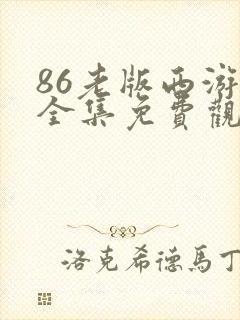 86老版西游
全集免費觀
洛克希德馬丁